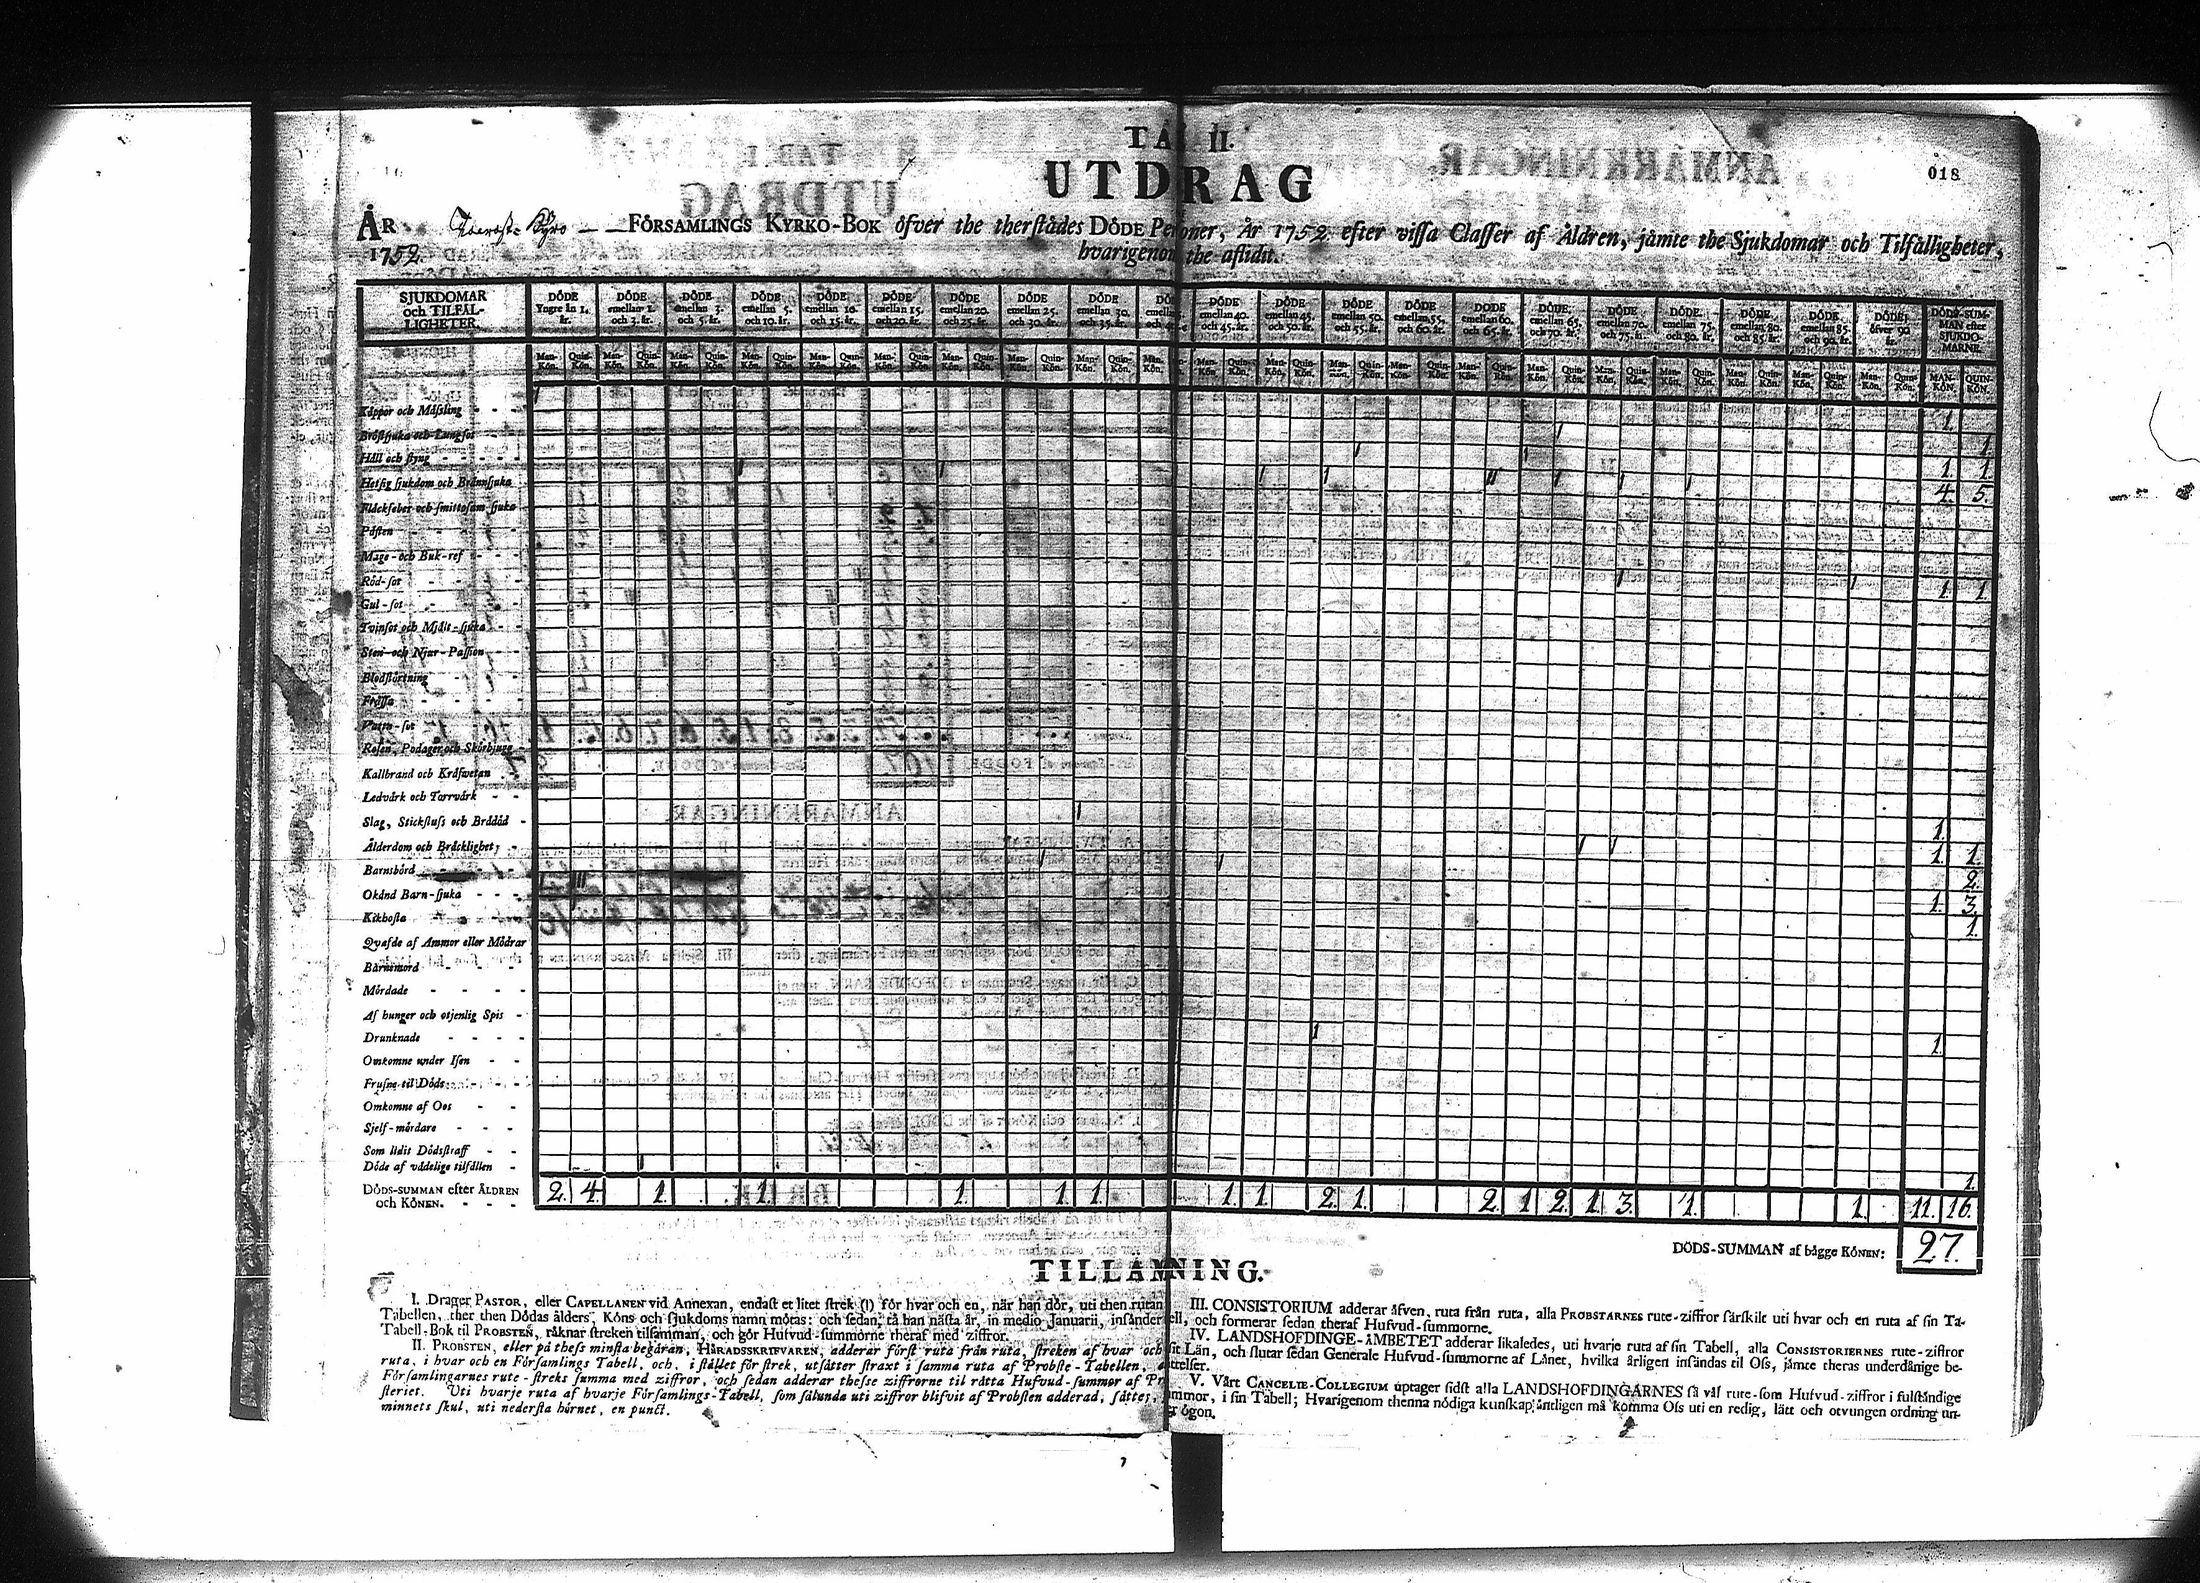 TAB. II.
UTDRAG
018
ÅR Kyro — — FÖRSAMLINGS KYRKO-BOK öfver the therstädes DÖDE Personer, År 1752. efter vissa Classer af Åldren, jämte the Sjukdomar och Tilfälligheter,
1752. hvarigenom the aflidit.
SJUKDOMAR och TILFÄLLIGHETER.
DÖDE Yngre än 1. år.
DÖDE emellan 1. och 3. år.
DÖDE emellan 3. och 5. år.
DÖDE emellan 5. och 10. år.
DÖDE emellan 10. och 15. år.
DÖDE emellan 15. och 20. år.
DÖDE emellan 20. och 25. år.
DÖDE emellan 25. och 30. år.
DÖDE emellan 30. och 35. år.
DÖDE emellan 40. och 45. år.
DÖDE emellan 45. och 50. år.
DÖDE emellan 50. och 55. år.
DÖDE emellan 55. och 60. år.
DÖDE emellan 60. och 65. år.
DÖDE emellan 65. och 70. år.
DÖDE emellan 70. och 75. år.
DÖDE emellan 75. och 80. år.
DÖDE emellan 80. och 85. år.
DÖDE emellan 85. och 90. år.
DÖDE öfver 90 år.
DÖDS-SUMMAN efter SJUKDOMARNE.
Man-Kön. Quin-Kön.
MAN-KÖN. QUIN-KÖN.
Koppor och Mässling - - - 1.
Bröstsjuka och Lungsot - - 1.
Håll och styng - - - - 1. 1.
Hetsig sjukdom och Brännsjuka 4. 5.
Fläckfeber och smittosam sjuka
Pästen - - - -
Mage- och Buk-ref - - -
Röd-sot - - - - 1. 1.
Gul-sot - - - -
Tvinsot och Mjält-sjuka - -
Sten- och Njur-Passion - -
Blodstörtning - - -
Frässa - - - -
Vatten-sot - - -
Rosen, Podager och Skörbjugg -
Kallbrand och Kräfwetan - -
Ledvärk och Torrvärk - -
Slag, Stickfluss och Brådöd - 1.
Ålderdom och Bräcklighet, - 1. 1.
Barnsbörd - - - - 2.
Okänd Barn-sjuka - - - 1. 3.
Kikhosta - - - 1.
Qvafde af Ammor eller Mödrar
Barnemord - - - -
Mördade - - - -
Af hunger och otjenlig Spis -
Drunknade - - - - 1.
Omkomne under Isen - -
Frusne til Döds - - -
Omkomne af Oos - -
Sjelf-mördare - - -
Som lidit Dödsstraff - -
Döde af vådelige tilfällen - 1.
DÖDS-SUMMAN efter ÅLDREN och KÖNEN. - - - 2. 4. 1. 1. 1. 1. 1. 1. 1. 2. 1. 2. 1. 2. 1. 3. 1. 1. 11. 16.
DÖDS-SUMMAN af bägge KÖNEN: 27.
TILLÄMNING.
I. Drager PASTOR, eller CAPELLANEN vid Annexan, endast et litet strek (I) för hvar och en, när han dör, uti then rutan
Tabellen, ther then Dödas ålders, Köns och sjukdoms namn mötas: och sedan, tå han nästa år, in medio Januarii, insänder
Tabell-Bok til PROBSTEN, räknar streken tilsamman, och gör Hufvud-summorne theraf med ziffror.
II. PROBSTEN, eller på thess minsta begäran, HÄRADSSKRIFVAREN, adderar först ruta från ruta, streken af hvar och
ruta, i hvar och en Församlings Tabell, och, i stället för strek, utsätter straxt i samma ruta af Probste-Tabellen,
Församlingarnes rute-streks summa med ziffror, och sedan adderar thesse ziffrorne til rätta Hufvud-summor af
steriet. Uti hvarje ruta af hvarje Församlings-Tabell, som sålunda uti ziffror blifvit af Probsten adderad, sättes,
minnets skul, uti nedersta hörnet, en punct.
III. CONSISTORIUM adderar äfven, ruta från ruta, alla PROBSTARNES rute-ziffror särskilt uti hvar och en ruta af sin Ta-
ell, och formerar sedan theraf Hufvud-summorne.
IV. LANDSHOFDINGE-ÄMBETET adderar likaledes, uti hvarje ruta af sin Tabell, alla CONSISTORIERNES rute-ziffror
sit Län, och slutar sedan Generale Hufvud-summorne af Länet, hvilka årligen insändas til Oss, jämte theras underdånige be-
rättelser.
V. Vårt CANCELIE-COLLEGIUM uptager sidst alla LANDSHOFDINGARNES så väl rute-som Hufvud-ziffror i fulständige
ummor, i sin Tabell; Hvarigenom thenna nödiga kunskap äntligen må komma Oss uti en redig, lätt och otvungen ordning un-
ögon.